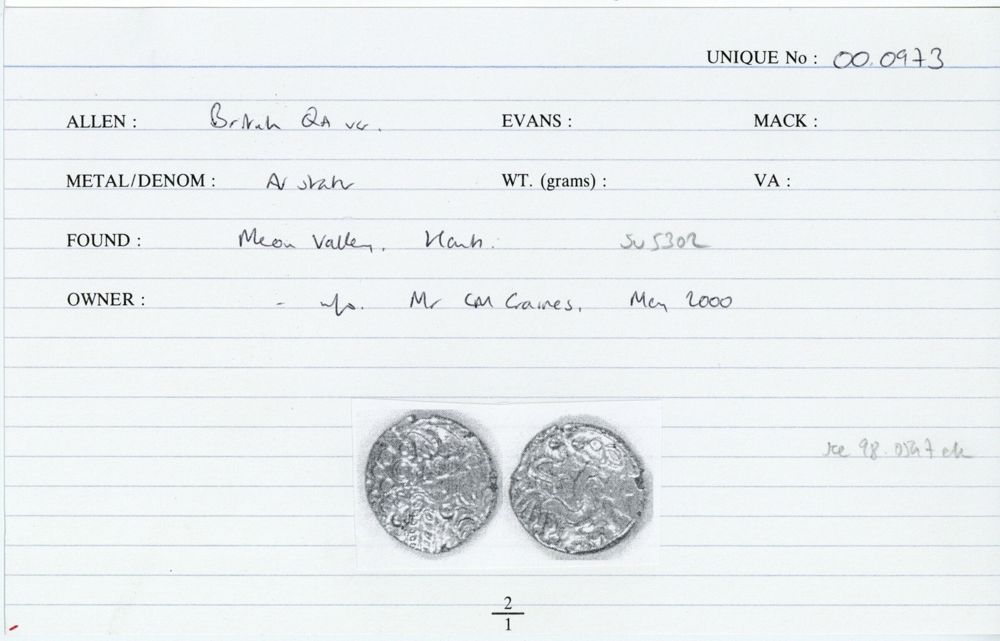 UNIQUE No : 00.0973
ALLEN : British QA var. EVANS : MACK :
METAL/DENOM : AV stater WT. (grams) : VA :
FOUND : Meon Valley, Hants. SU 5302
OWNER : - Mr CM Craines, May 2000
see 98.0547 etc
2
1